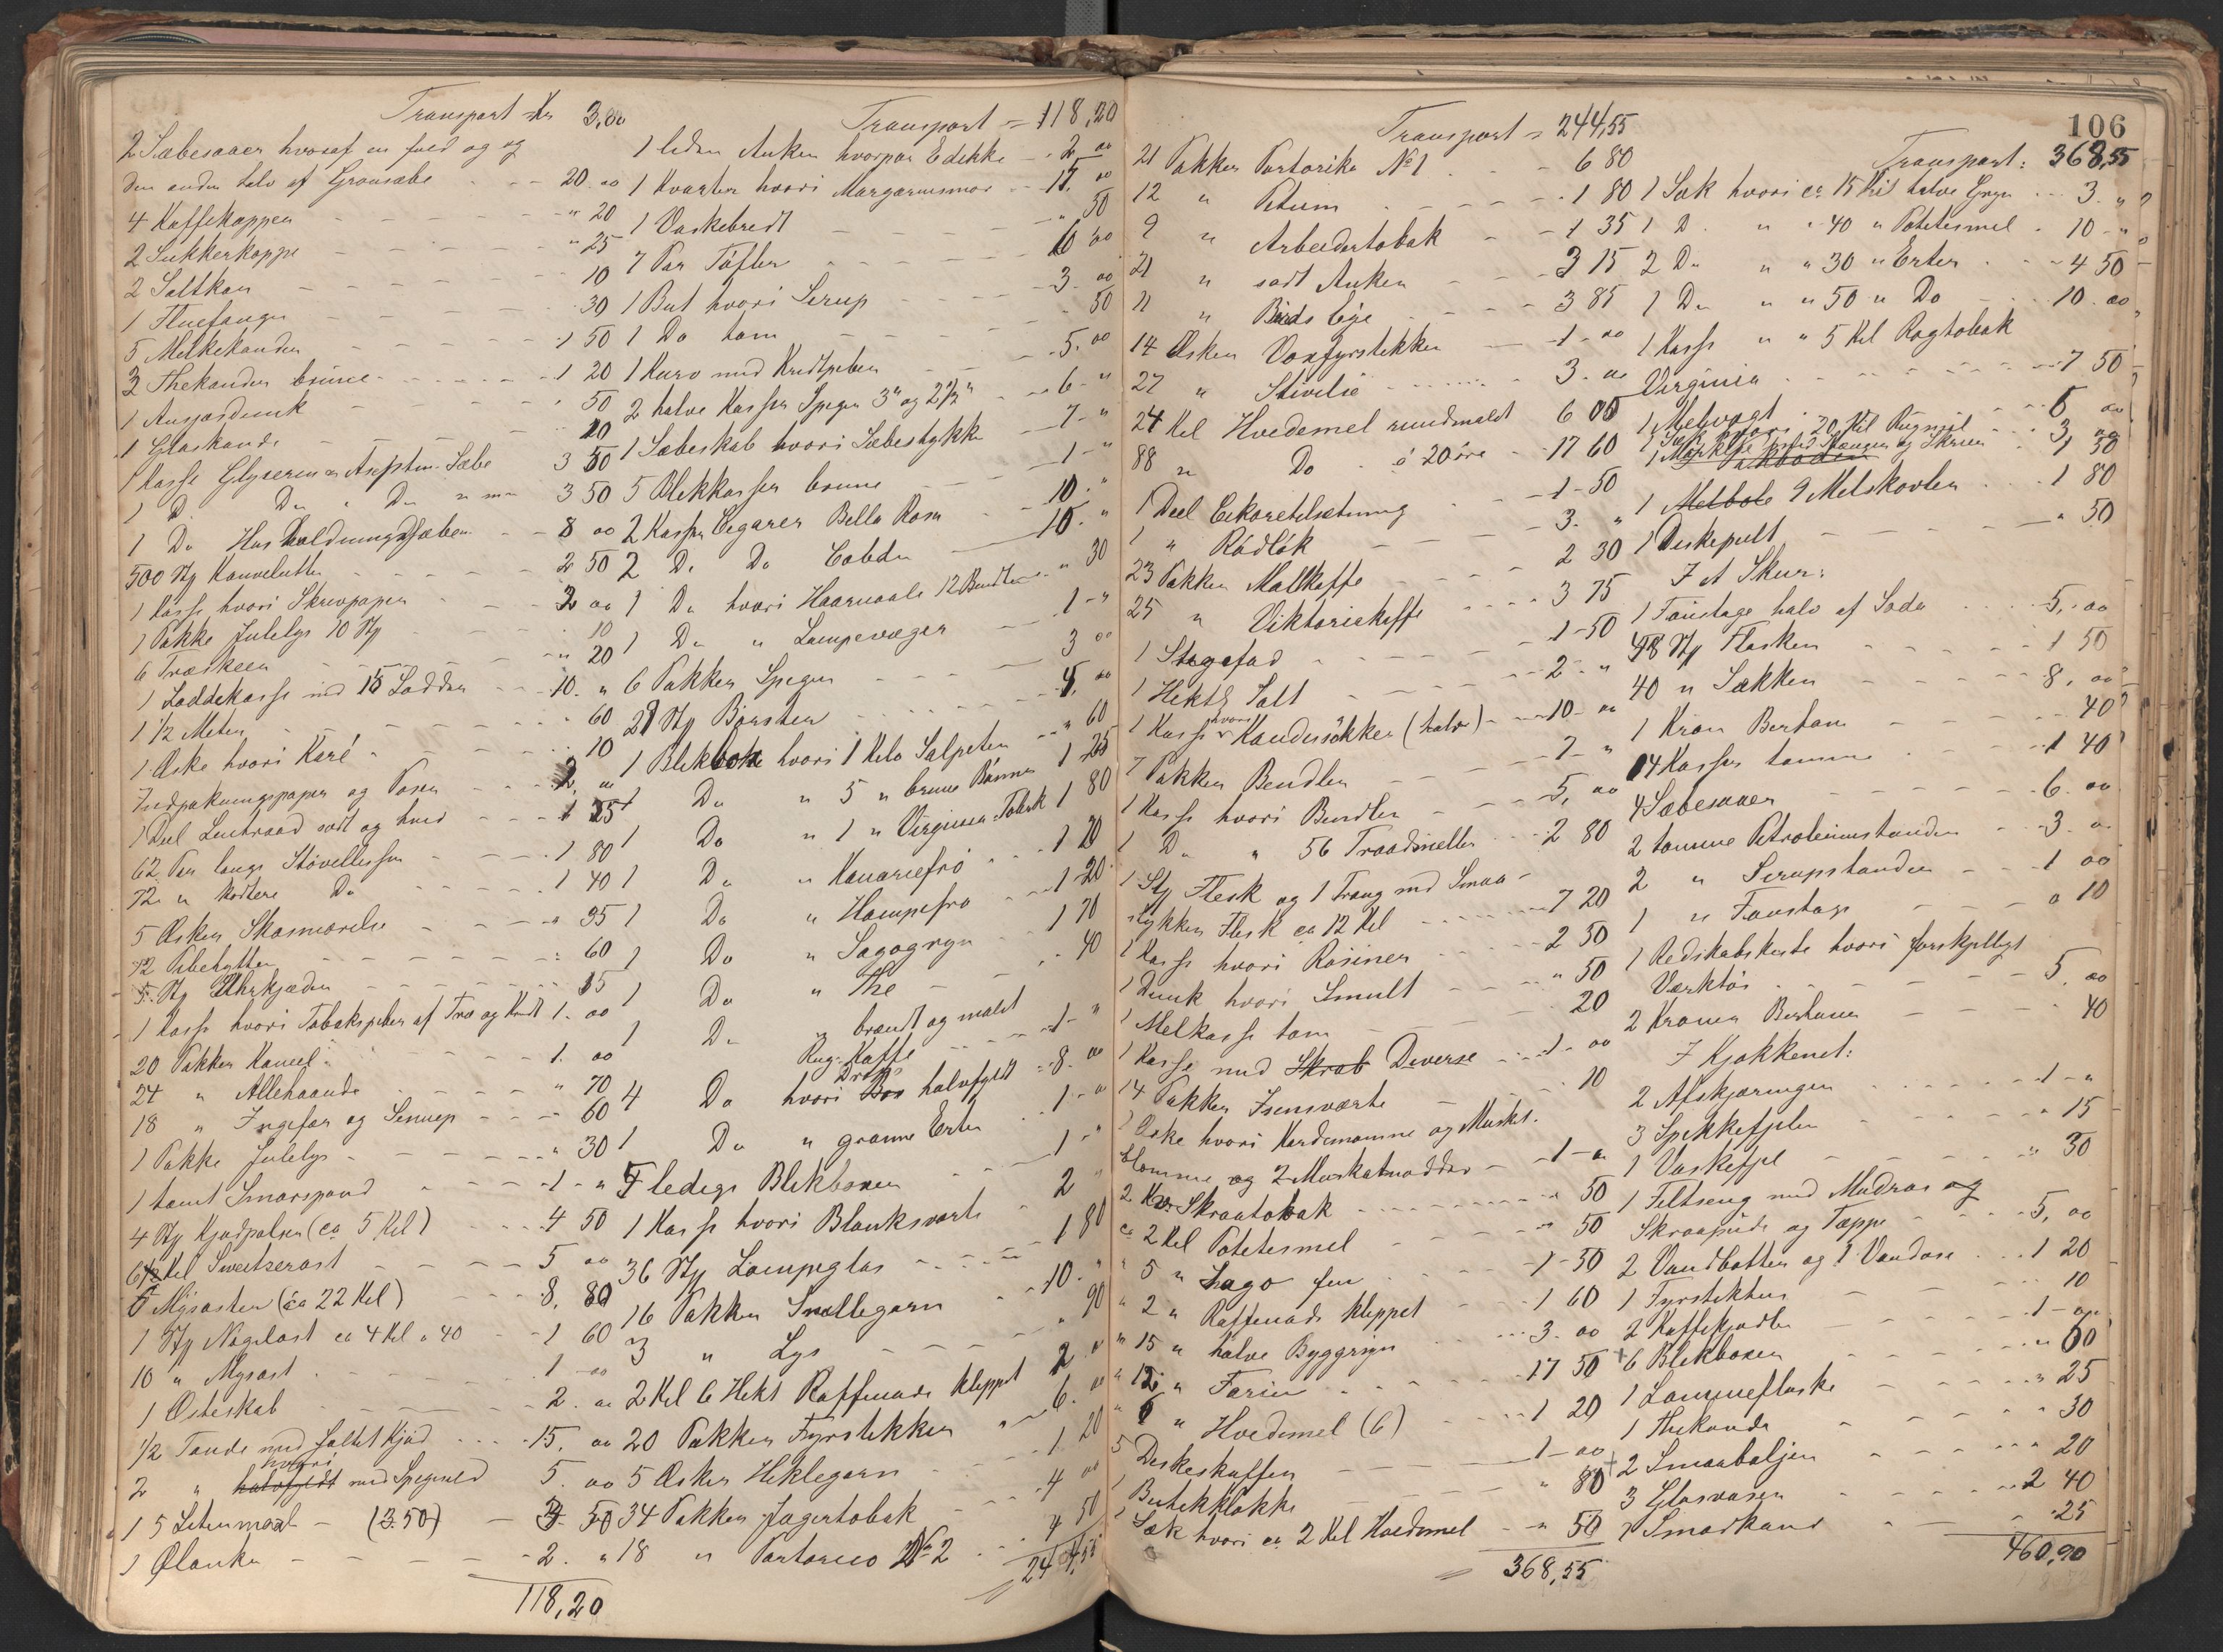 Transport Kr 3,00
2 Sæbesaaer hvoraf en fuld og og
den anden halv af Grønsæbe - - 20. 00
4 Kaffekopper - - " 20
2 Sukkerkoppe - - " 25
2 Saltkar - - 10
1 Fluefanger - - 30
5 Melkekander - - 1 50
3 Thekander brune - - 1 20
1 Ansjosdunk - - 50
1 Glaskande - - 20
1 Kasse Glyserin og Sæbe 3 50
1 Do Do " Do " 3 50
1 Do Husholdningssæbe - 8 00
500 Stk Konvolutter - - 2 50
1 Kasse hvori Skrivpapir - - 2 00
1 Pakke Julelys 10 Stk - - 10
6 Træskeer - - " 20
1 Loddekasse med 15 Lodder - - 10. "
1 1/2 Meter - - " 60
1 Æske hvori Karé - - 10
Indpakningspapir og Poser - - 2. 00
1 Deel Lintraad sort og hvid - - 1 25
62 Par lange Støvellisser - - 1 80
72 " kortere Do - - 1 40
5 Æsker Skosmørelse - - 35
12 Pibehytter - - 60
5 Stk Uhrkjæder - - 35
1 Kasse hvori Tobakspiber af Træ og Kridt 1. 00
20 Pakker Kaneel - - 1. 00
24 " Allehaande - - " 70
18 " Ingefær og Sennep - - 60
1 Pakke Julelys - - " 30
1 tomt Smørspand - - 1 - "
4 Stk Kjødpølser (ca 5 Kil) - - 4 50
6 1/2 Kil Sweitserost - - 5 00
5 Mysoster (ca 22 Kil) - - 8, 80
1 Stk Nøgelost ca 4 Kil a 40 - - 1 60
10 " Mysost - - 1 - 00
1 Osteskab - - 2. 00
1/2 Tønde med saltet Kjød - - 15. 00
2 " hvori halvfyldt med Spegesild 5. 00
1 5 Litermaal - (3.50) - 3 50
1 Ølanker - - 2. "
118,20
Transport = 118,20
1 liden Anker hvorpaa Edikke - - 2 00
1 Kvarter hvori Margarinsmør - - 17. 00
1 Vaskebredt - - " 50
7 Par Tøfler - - 10 00
1 But hvori Sirup - - 3. 00
1 Do tom - - " 50
1 Kurv med Kridtpiber - - 5. 00
2 halve Kasser Spiger 3" og 2 1/2" - - 6 - "
1 Sæbeskab hvori Sæbestykke - 7 - "
5 Blikkasser brune - - 1 - "
2 Kasser Cigarer Bella Rosa - - 10. "
2 Do Do Cobden - - 10. "
1 Do hvori Haarnaale 12 Bundter " 30
1 Do " Lampevæger - - 1 - "
6 Pakker Spiger - - 3 00
28 Stk Børster - - 4. 00
1 Blikboks hvori 1 Kilo Salpeter - " 60
1 Do " 5 " brune Bønner 1 25
1 Do " 1 " Virginia Tobak 1 80
1 Do " Kanariefrø - - 1 20
1 Do " Hampefrø - - 1 20
1 Do " Sagogryn - - 1 70
1 Do " The - - " 40
1 Do " brændt og malet
Rug-Kaffe - - 1 - "
4 Do hvori Drops halvfyldt - 8. 00
1 Do " grønne Erter - - 1 - "
5 ledige Blikboxer - - 1 - "
1 Kasse hvori Blanksværte - - 2 "
36 Stk Lampeglas - - 1 80
16 Pakker Snellegarn - - 10. "
3 " Lys - - " 90
2 Kil 6 Hekt Raffinade kleppet 2 "
20 Pakker Fyrstikker - - 6. 00
5 Æsker Heklegarn - - 1 20
34 Pakker Jagertobak - - 4 00
18 " Portorico No 2 - - 4 50
244,55
Transport = 244,55
21 Pakker Portoriko No 1 - - 6 80
12 " Petum - - 1 80
9 " Arbeidertobak - - 1 35
21 " sort Anker - - 3 15
11 " Blads Eje - - 3 85
14 Æsker Voxfyrstikker - - 1 - 00
27 " Stivelse - - 3. 00
24 Kil Hvedemel rundmalet 6 00
88 " Do à 20 øre - 17 60
1 Deel - - 1 - 50
1 " Rødløk - - 3. "
23 Pakker Maltkaffe - - 2 30
25 " Viktoriakaffe - - 3 75
1 Stegefad - - 1 - 50
1 Hektl Salt - - 2 - "
1 Kasse hvori Kandissukker (halv) - - 10 - 00
7 Pakker Bendler - - 7 - "
1 Kasse hvori Bendler - - 5, 00
1 Do " 56 Traadsneller - - 2 80
1 Stk Flesk og 1 Traug med Smaa-
stykker Flesk ca 12 Kil - - 7 20
1 Kasse hvori Rosiner - - 2 50
1 Dunk hvori Smult - - " 50
1 Melkasse tom - - 20
1 Kasse med Skrab Diverse - - 1 - 00
14 Pakker Isensværte - - 10
1 Æske hvori Kardemomme og Muskat-
blomme og 2 Muskatnødder - - 1 - 00
2 Kv. Skraatobak - - 50
ca 2 Kil Potetesmel - - " 50
" 5 " Sago fin - - 1 - 50
" 2 " Raffinade kleppet - - 1 60
" 15 " halve Byggryn - - 3. 00
" 12 " Farin - - 17 50
" 6 " Hvedemel (6) - - 1 20
5 Deskeskuffer - - 1 - 00
1 Butikklokke - - " 80
1 Sæk hvori ca 2 Kil Hvedemel - - " 50
368,55
106
Transport: 368,55
1 Sæk hvori ca 15 Kil halve Gryn - - 3. "
1 D. " " 40 " Potetesmel - 10 - "
2 Do " " 30 " Erter - - 4 50
1 Do " " 50 " Do - - 10. 00
1 Kasse " " 5 Kil Ragtobak
Virginia - - 7 50
1 Melvægt - - 6 00
1 Sæk hvori 20 Kil Rugmel - - 3 00
1 1 50
1 Melbole 9 Melskovler - - 1 80
1 Deskepult - - " 50
I et Skur:
1 Faustage halv af Soda - - 5. 00
98 Stk Flasker - - 1 50
40 " Sækker - - 8, 00
1 Kran Bertane - - 40
14 Kasser tomme - - 1 40
4 Sæbesaaer - - 6. 00
2 tomme Petroleumstønder - - 3. 00
2 " Sirupstønder - - 1 00
1 " Faustage - - " 10
1 Redskabskiste hvori forskjelligt
Værktøi - - 5. 00
2 Kraner Bertane - - 40
I Kjøkkenet:
2 Afskjæringer - - 1 - "
3 Spekkefjeler - - " 15
1 Vaskefjel - - " 30
1 Feltseng med Madras og
Skraapude og Tæppe - - 5, 00
2 Vandbøtter og 1 Vandøse - - 1 20
1 Fyrstikhus - - 10
2 Kaffekjedler - - 1 - 00
6 Blikboxer - - " 60
1 Lommeflaske - - " 25
1 Thekande - - " 30
2 Smaabaljer - - " 20
3 Glasvaser - - 2 40
1 Smørkand - - " 25
460,90